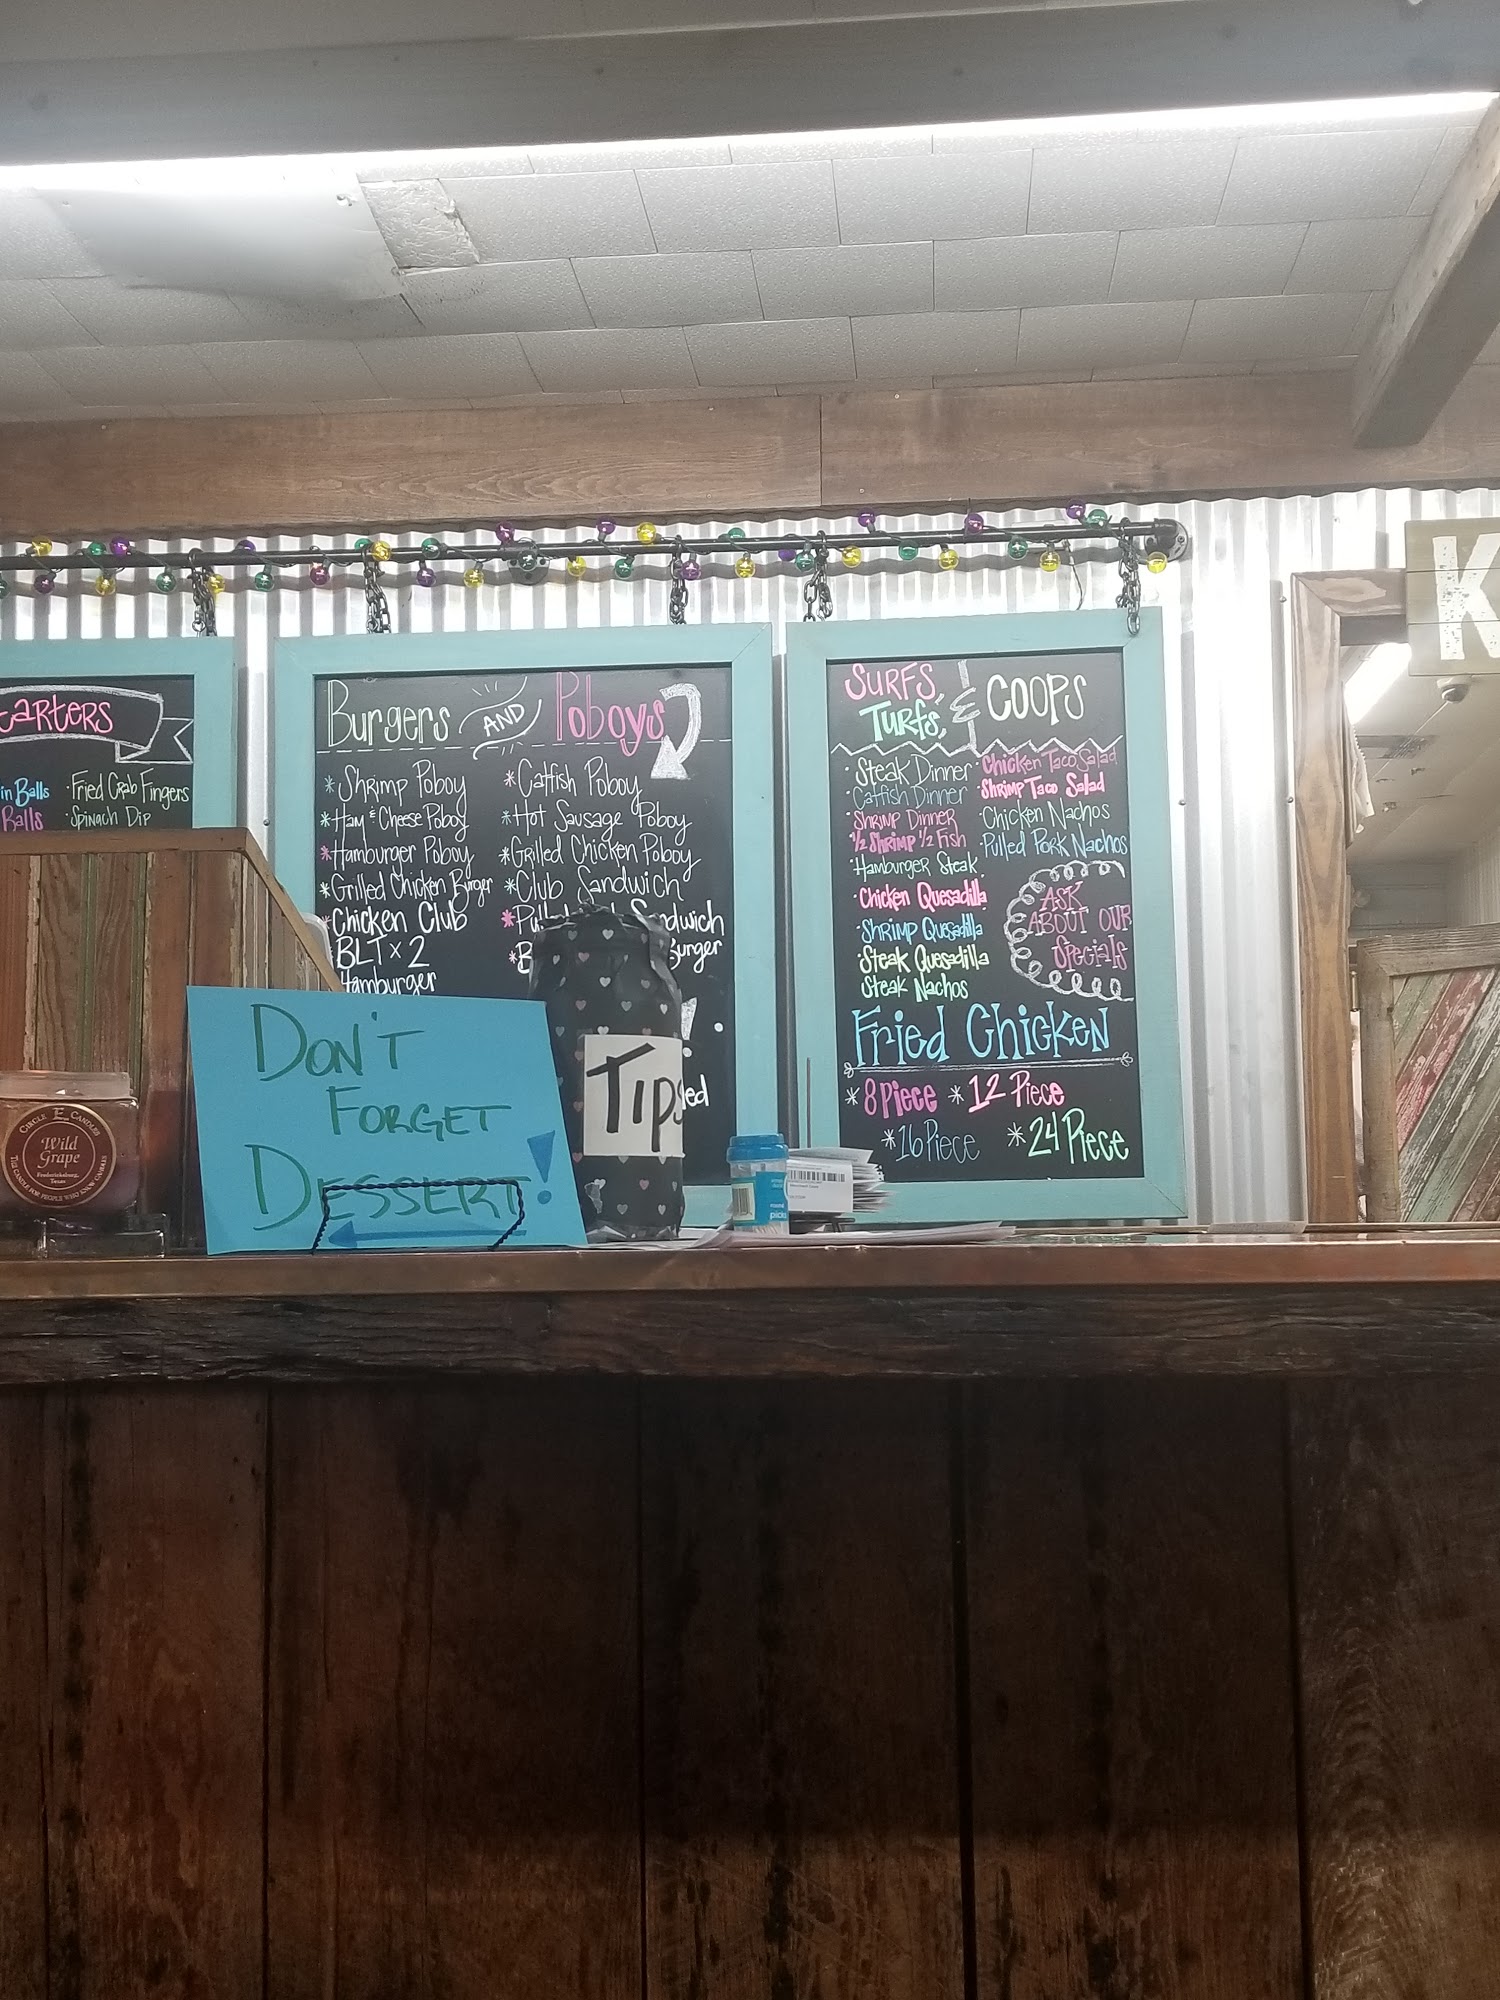 K
Burgers AND Poboys
* Shrimp Poboy
* Ham & Cheese Poboy
* Hamburger Poboy
* Grilled Chicken Burger
* Chicken Club
BLT x 2
Hamburger
* Catfish Poboy
* Hot Sausage Poboy
* Grilled Chicken Poboy
* Club Sandwich
SURFS,
TURFS, & COOPS
· Steak Dinner
· Catfish Dinner
· Shrimp Dinner
· 1/2 Shrimp 1/2 Fish
· Hamburger Steak
· Chicken Quesadilla
· Shrimp Quesadilla
· Steak Quesadilla
· Steak Nachos
· Chicken Taco Salad
· Shrimp Taco Salad
· Chicken Nachos
· Pulled Pork Nachos
ASK
ABOUT OUR
Specials
Fried Chicken
* 8 Piece * 12 Piece
* 16 Piece * 24 Piece
· Fried Crab Fingers
· Spinach Dip
Balls
Balls
DON'T
FORGET
DESSERT!
Tips
CIRCLE E CANDLES
Wild
Grape
Fredericksburg,
Texas
picks